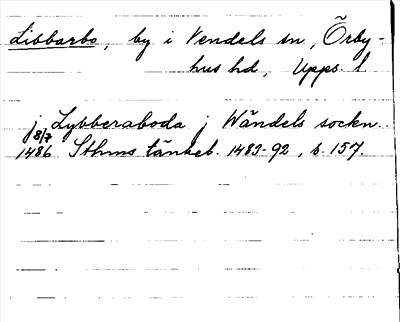 Libbarbo, by i Vendels sn, Örby-
hus hd, Upps. l
j Lybberaboda j Wändels sockn.
8/7
1486 Sthms tänkeb. 1483-92, s. 157.